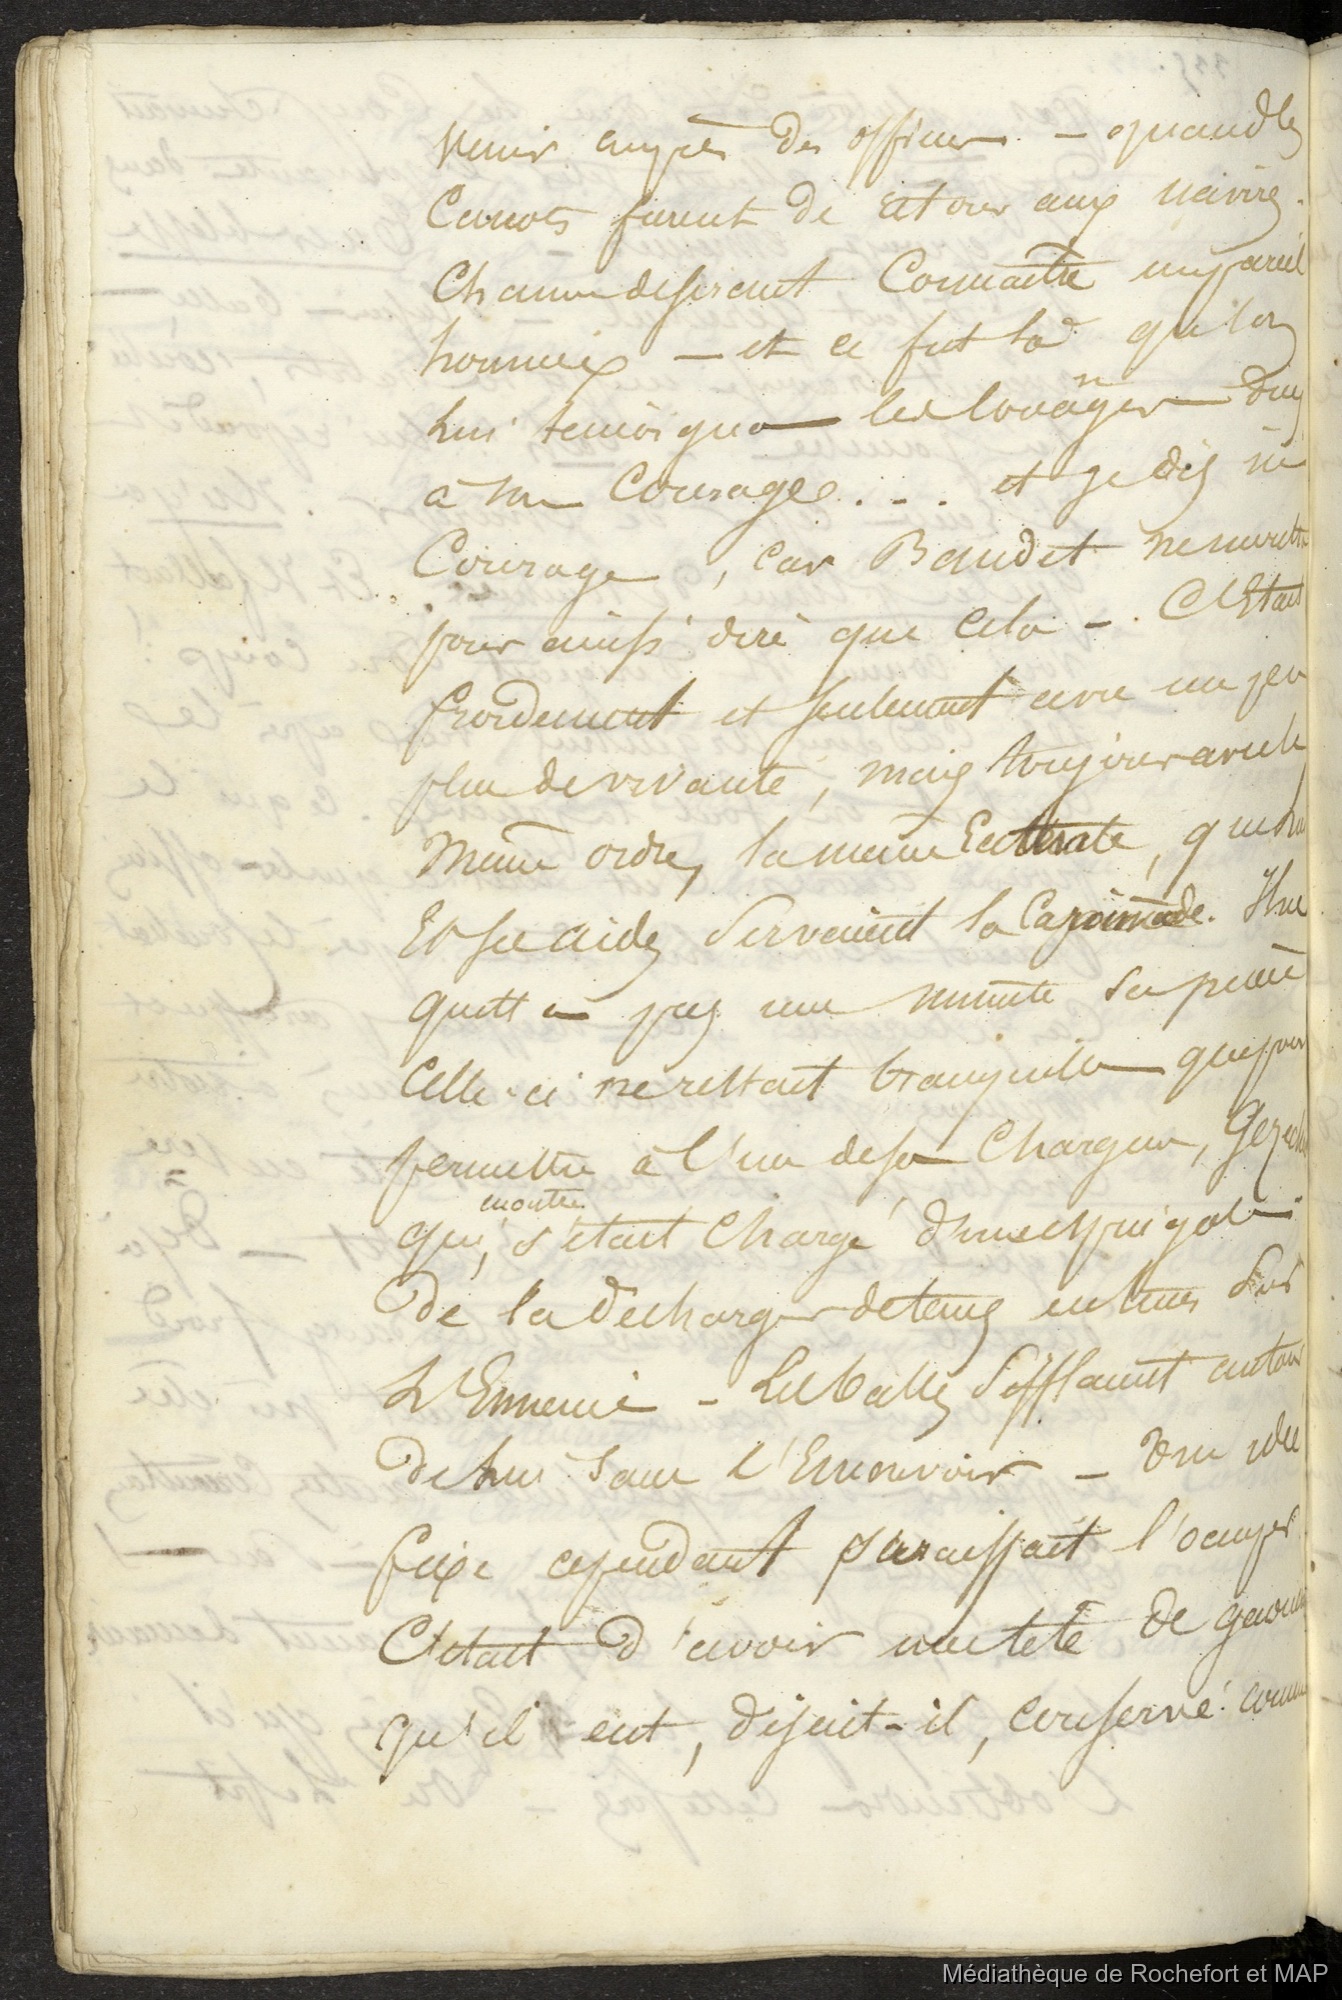 venir auprès des officiers. — quand les
Canots furent de retour aux navires.
Chacun desirait Connaitre un pareil
homme — et ce fut là qu'on
lui temoigna les louanges dus
à son Courage... et je dis
Courage, car Baudet ne
pour ainsi dire que cela —. C'Etait
froidement et seulement avec un peu
plus de vivacité, mais toujours avec le
même ordre, la même que lui
Et ses aides servaient la Caronnade. Il ne
quitta pas une minute sa pièce
Celle-ci ne restait tranquille que pour
permettre à l'un de ses Chargeurs,
qui, en outre
s'était Chargé d'une espingole
De la decharger de tems en tems sur
L'Ennemi — Les balles sifflaient autour
de lui sans l'Emouvoir — Une idée
fixe cependant paraissait l'occuper
C'etait d'avoir une tête de
qu'il eut, disait-il, conservé comme
Médiathèque de Rochefort et MAP